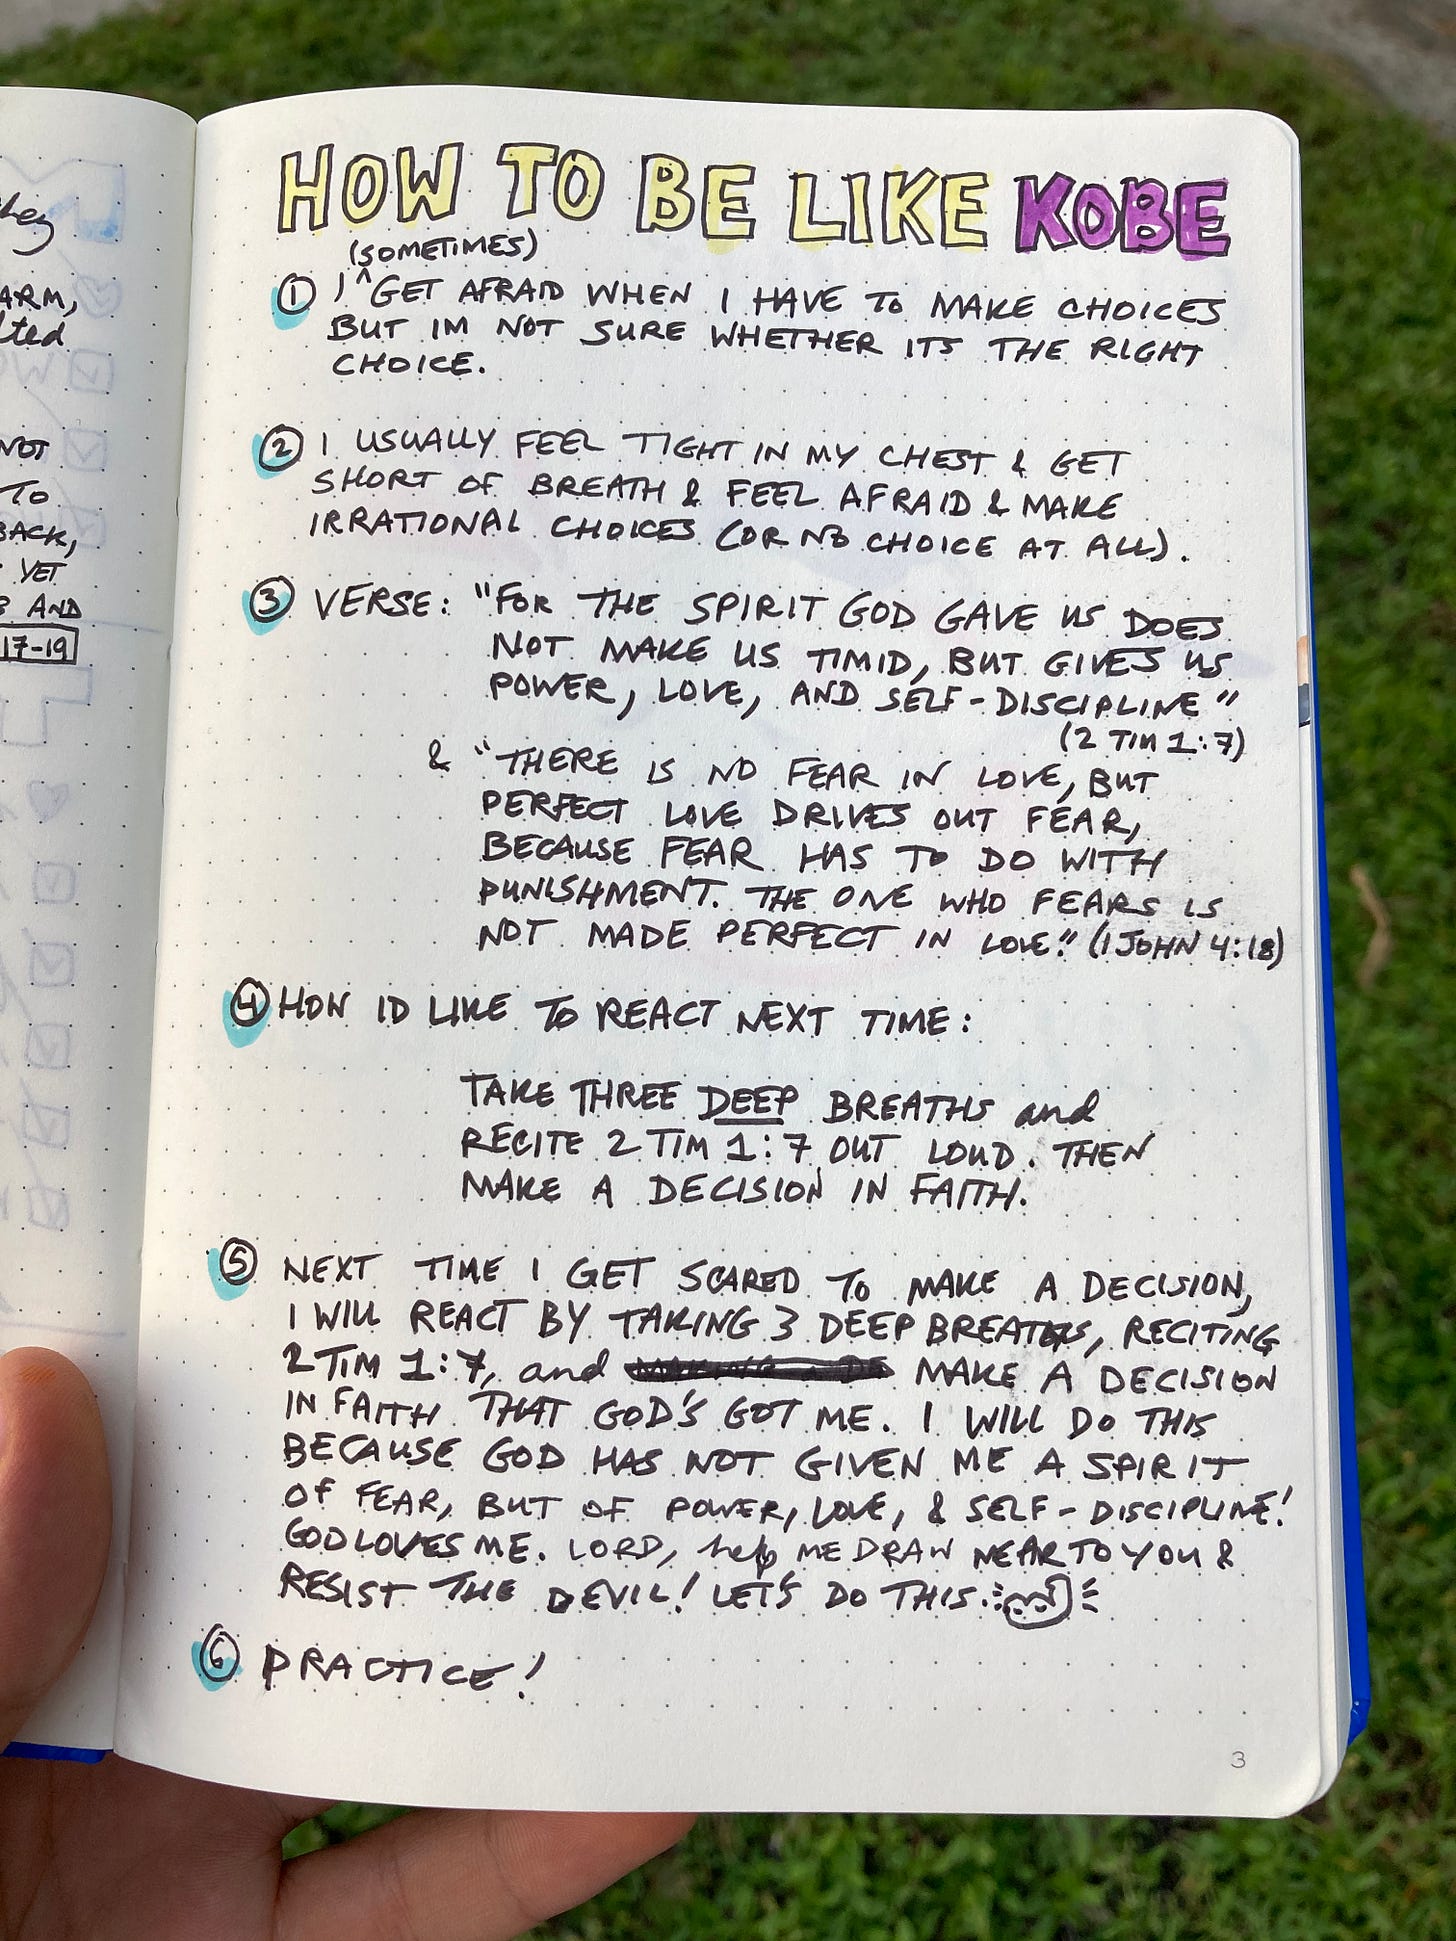 ARM,
NOT
TO
BACK,
YET
AND
17-19
HOW TO BE LIKE KOBE
(SOMETIMES)
1 I ^ GET AFRAID WHEN I HAVE TO MAKE CHOICES
BUT IM NOT SURE WHETHER ITS THE RIGHT
CHOICE.
2 I USUALLY FEEL TIGHT IN MY CHEST & GET
SHORT OF BREATH & FEEL AFRAID & MAKE
IRRATIONAL CHOICES (OR NO CHOICE AT ALL).
3 VERSE: "FOR THE SPIRIT GOD GAVE US DOES
NOT MAKE US TIMID, BUT GIVES US
POWER, LOVE, AND SELF-DISCIPLINE"
(2 TIM 1:7)
& "THERE IS NO FEAR IN LOVE, BUT
PERFECT LOVE DRIVES OUT FEAR,
BECAUSE FEAR HAS TO DO WITH
PUNISHMENT. THE ONE WHO FEARS IS
NOT MADE PERFECT IN LOVE." (1 JOHN 4:18)
4 HOW ID LIKE TO REACT NEXT TIME:
TAKE THREE DEEP BREATHS and
RECITE 2 TIM 1:7 OUT LOUD. THEN
MAKE A DECISION IN FAITH.
5 NEXT TIME I GET SCARED TO MAKE A DECISION,
I WILL REACT BY TAKING 3 DEEP BREATHS, RECITING
2 TIM 1:7, and MAKE A DECISION
IN FAITH THAT GOD'S GOT ME. I WILL DO THIS
BECAUSE GOD HAS NOT GIVEN ME A SPIRIT
OF FEAR, BUT OF POWER, LOVE, & SELF-DISCIPLINE!
GOD LOVES ME. LORD, help ME DRAW NEAR TO YOU &
RESIST THE DEVIL! LET'S DO THIS.
6 PRACTICE!
3